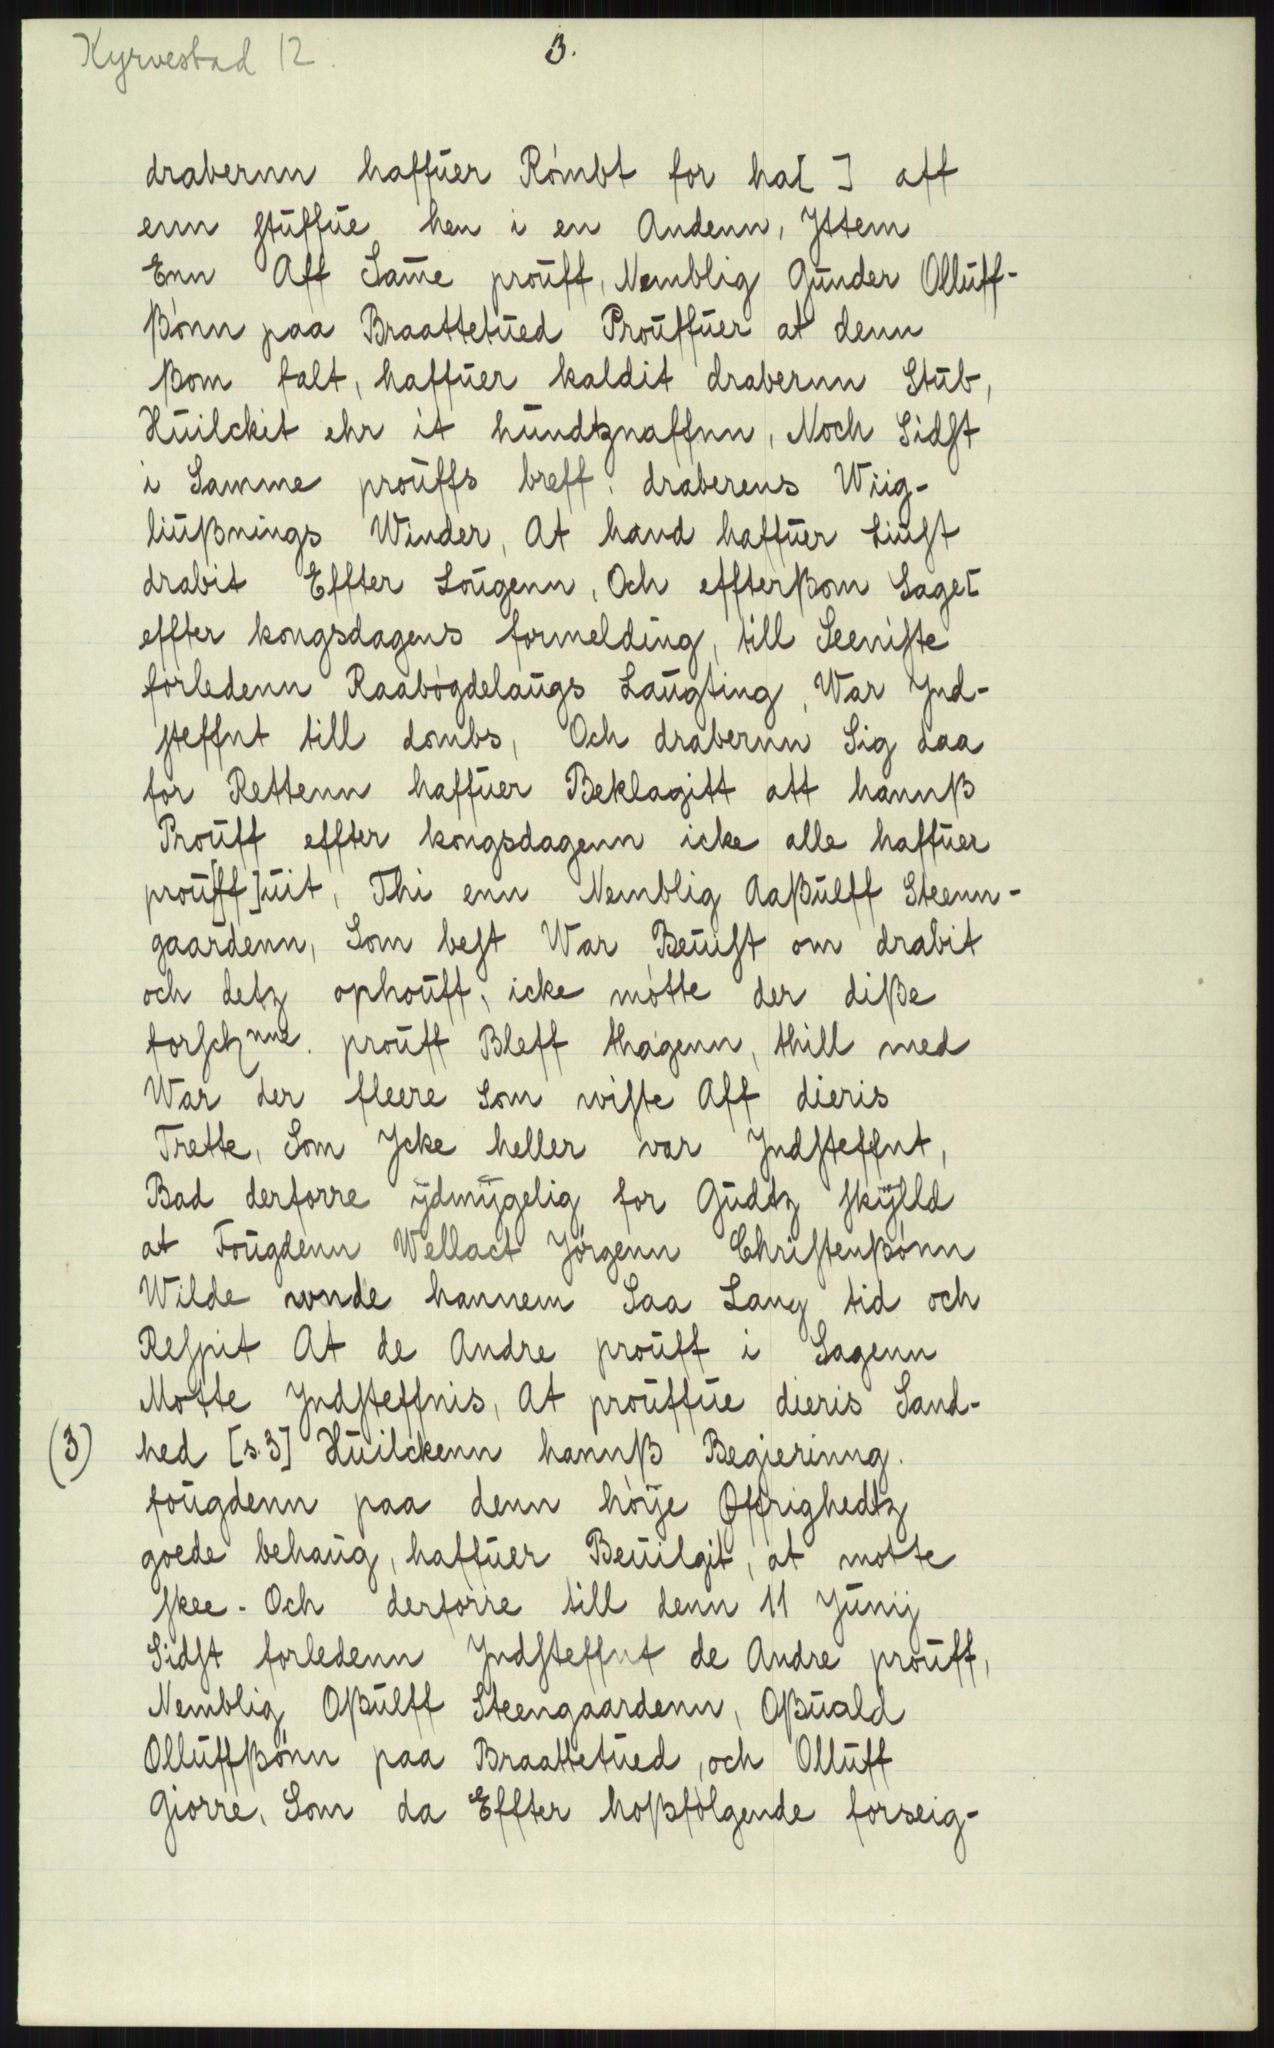 Kyrvestad 12.
3.
drabernn haffuer Römbt for ha[ ] aff
enn stuffue hen i en Andenn, Jttem
Enn Aff Same prouff, Nemblig Gunder Olluff-
ßönn paa Braattetued Prouffuer at denn
ßom falt, haffuer kaldit drabernn Stub,
Huilckit ehr it hundtznaffnn, Noch Sidst
i Samme prouffs breff. draberens Wiig-
liußnings Winder, At hand haffuer Liust
drabit Effter Lougenn, Och effterßom Sage[
effter kongsdagens formelding, till Seeniste
forledenn Raabögdelaugs Laugting, War Jnd-
steffnt till dombs, Och drabernn Sig daa
for Rettenn haffuer Beklagitt att hannß
Prouff effter kongsdagenn icke alle haffuer
prou[ff]uit, Thi enn Nemblig Aaßulff Steenn-
gaardenn, Som best War Beuist om drabit
och detz ophouff, icke mötte der diße
forschne. prouff Bleff thagenn, thill med
War der fleere Som wiste Aff dieris
Trette, Som Jcke heller var Jndsteffnt,
Bad derforre ydmygelig for Gudtz skylld
at Fougdenn Wellact Jörgenn Christenßönn
Wilde wnde hannem Saa Lang tid och
Respit At de Andre prouff i Sagenn
Motte Jndsteffnis, At prouffue dieris Sand-
(3) hed [s.3] Huilckenn hannß Begierinng.
fougdenn paa denn höije Øffrighedtz
goede behaug, haffuer Beuilgit, at motte
skee. Och derforre till denn 11 Junij
Sidst forledenn Jndsteffnt de Andre prouff,
Nemblig Oßulff Steengaardenn, Oßuald
Olluffßönn paa Braattetued, och Olluff
Giorre, Som da Effter hoßfölgende forseig-